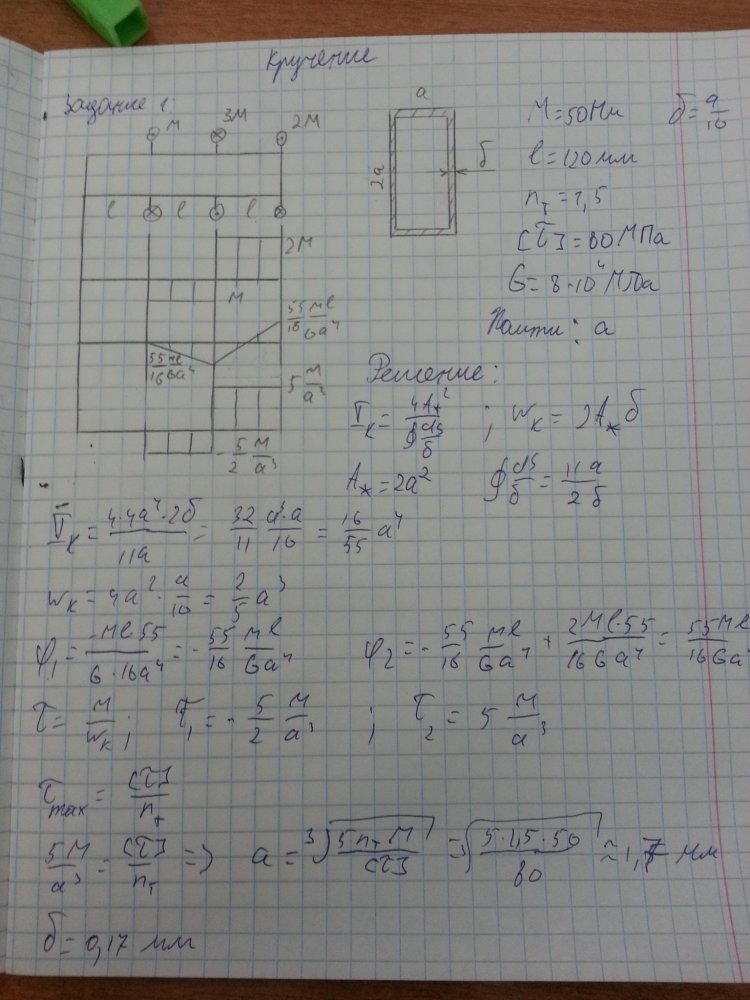 Кручение
Задание 1:
M 3M 2M
l l l
2M
M
55/16 Ml/Ga⁴
55/16 Ml/Ga⁴
5 M/a³
- 5/2 M/a³
a
2a
δ
M = 50 Нм δ = a/10
l = 120 мм
n_T = 1,5
[τ] = 80 МПа
G = 8·10⁴ МПа
Найти: a
Решение:
I_K = 4A*²/∮ds/δ ; W_K = 2A* δ
A* = 2a² ∮ds/δ = 11a/2δ
I_K = 4·4a⁴·2δ/11a = 32/11 a³·a/10 = 16/55 a⁴
W_K = 4a² · a/10 = 2/5 a³
φ₁ = -Ml·55/G·16a⁴ = - 55/16 Ml/Ga⁴ φ₂ = - 55/16 Ml/Ga⁴ + 2Ml·55/16Ga⁴ = 55Ml/16Ga⁴
τ = M/W_K ; τ₁ = - 5/2 M/a³ ; τ₂ = 5 M/a³
τ_max = [τ]/n_T
5M/a³ = [τ]/n_T => a = ³√(5 n_T M/[τ]) = ³√(5·1,5·50/80) ≈ 1,7 мм
δ = 0,17 мм